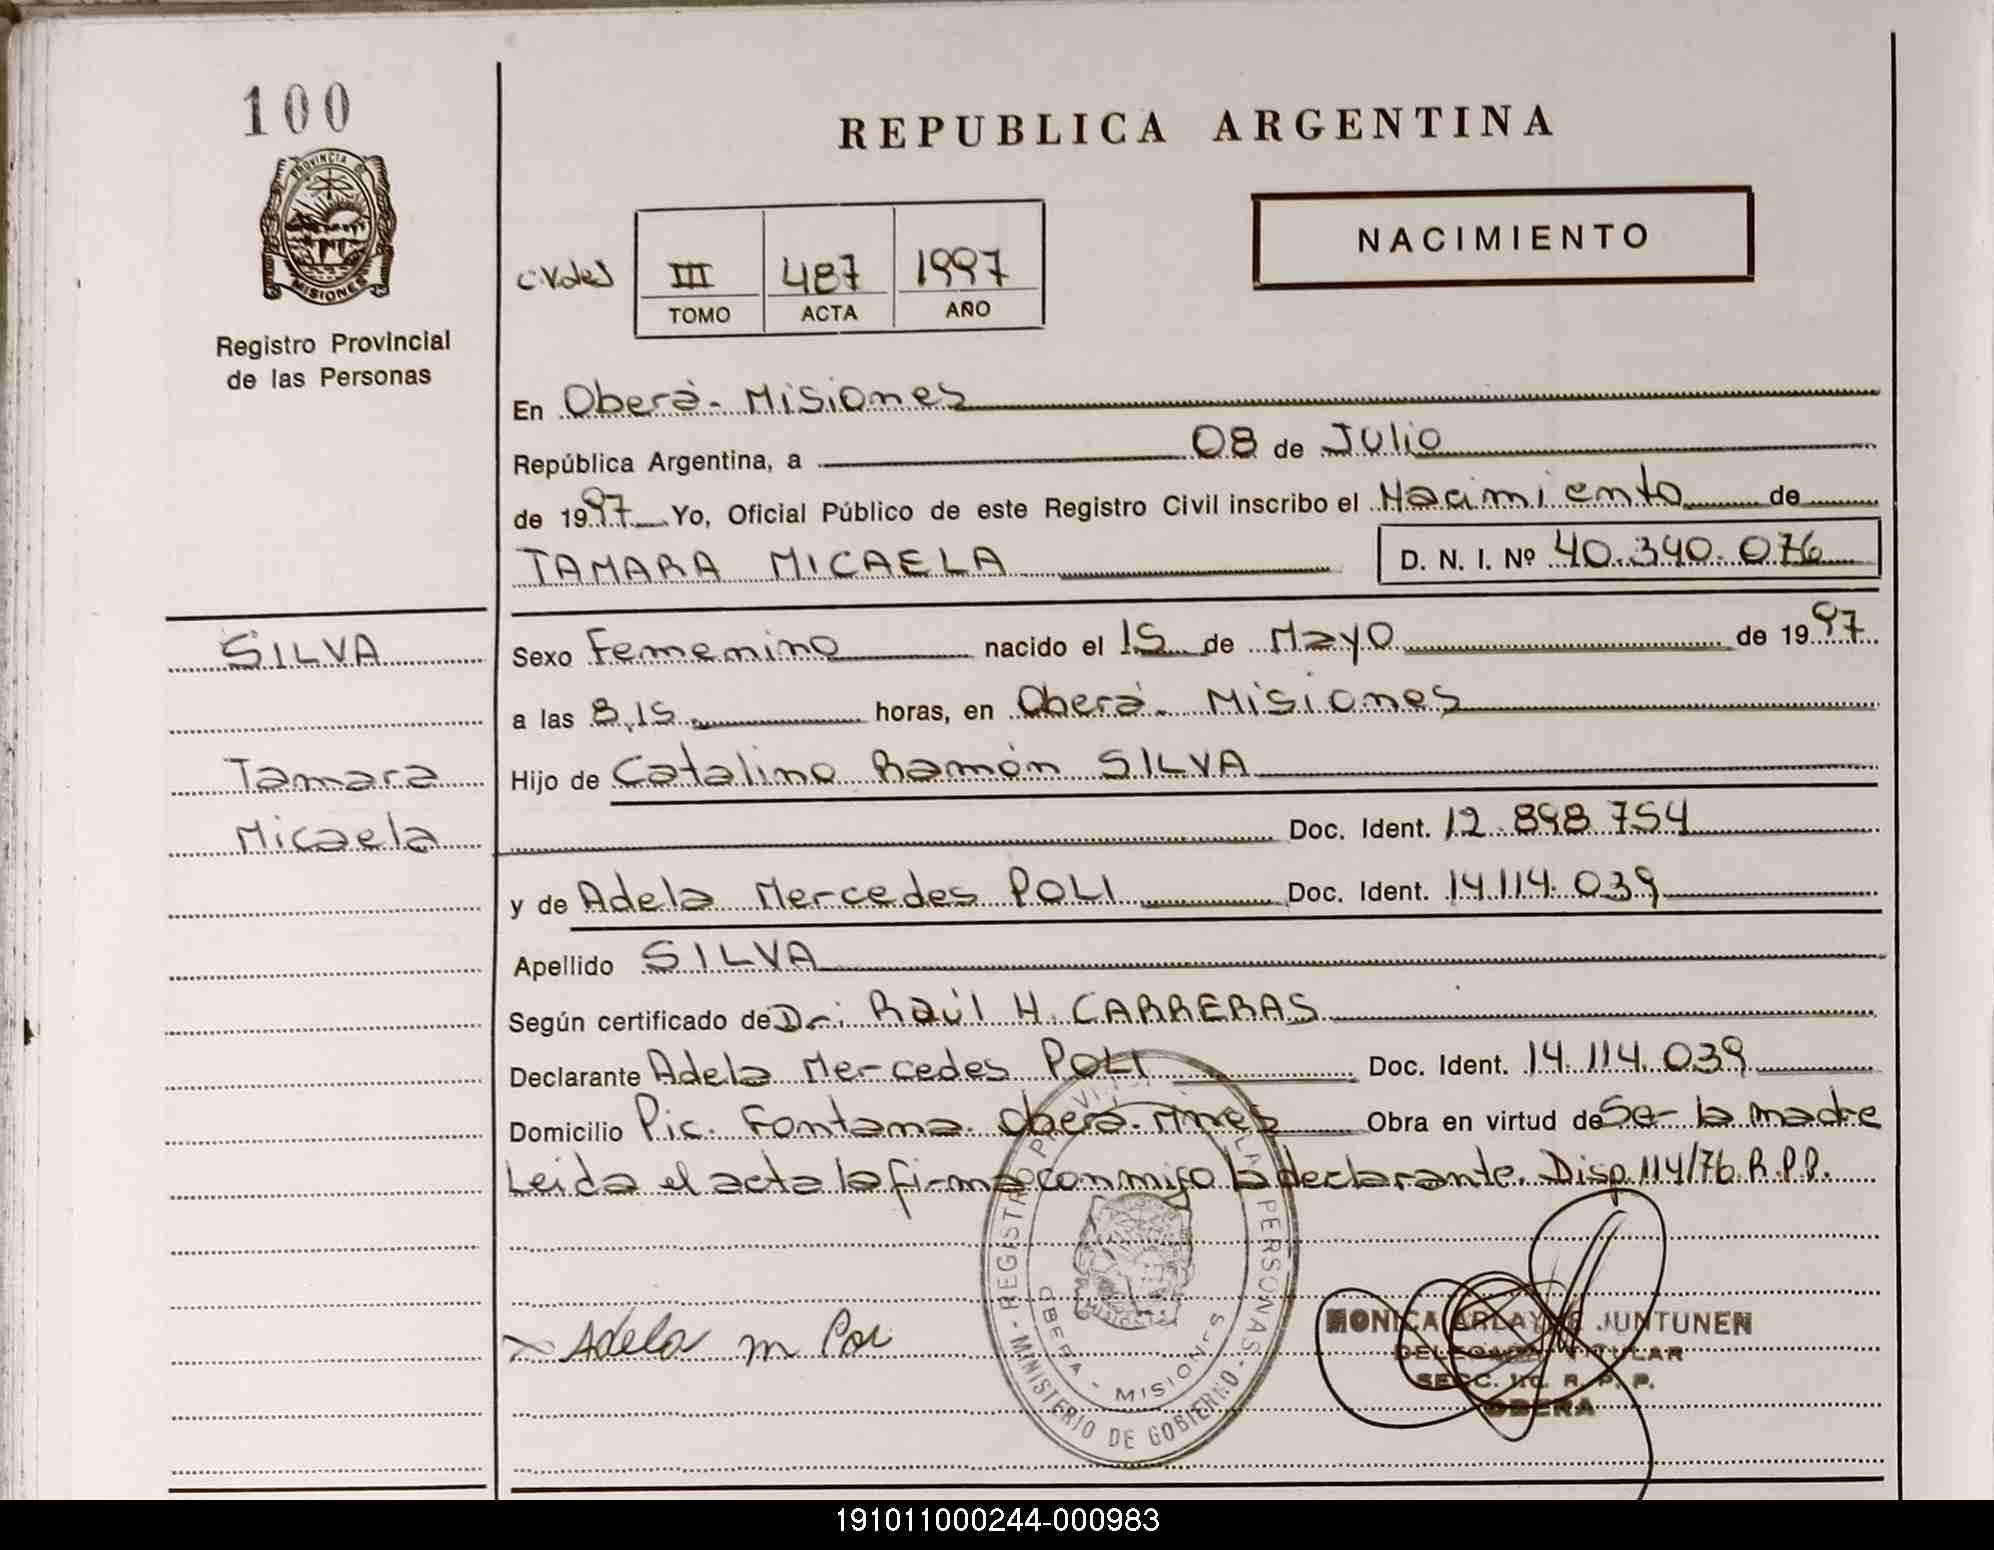 100
PROVINCIA DE
MISIONES
Registro Provincial
de las Personas
REPUBLICA ARGENTINA
NACIMIENTO
III 487 1997
TOMO ACTA AÑO
En Oberá - Misiones
República Argentina, a 08 de Julio
de 1997 Yo, Oficial Público de este Registro Civil inscribo el Nacimiento de
TAMARA MICAELA D. N. I. Nº 40.340.076
SILVA
Tamara
Micaela
Sexo Femenino nacido el 15 de Mayo de 1997
a las 8,15 horas, en Oberá - Misiones
Hijo de Catalino Ramón SILVA
Doc. Ident. 12.898.754
y de Adela Mercedes POLI Doc. Ident. 14.114.039
Apellido SILVA
Según certificado de Dr: Raúl H. CARRERAS
Declarante Adela Mercedes POLI Doc. Ident. 14.114.039
Domicilio Pic. Fontana. Oberá - Mnes Obra en virtud de Ser la madre
Leida el acta la firma conmigo la declarante. Disp. 114/76. R.P.P.
REGISTRO PERSONAS - MINISTERIO DE GOBIERNO -
OBERA - MISIONES
Adela M Poli
MONICA JUNTUNEN
TITULAR
SECC. R. P. P.
OBERA
191011000244-000983